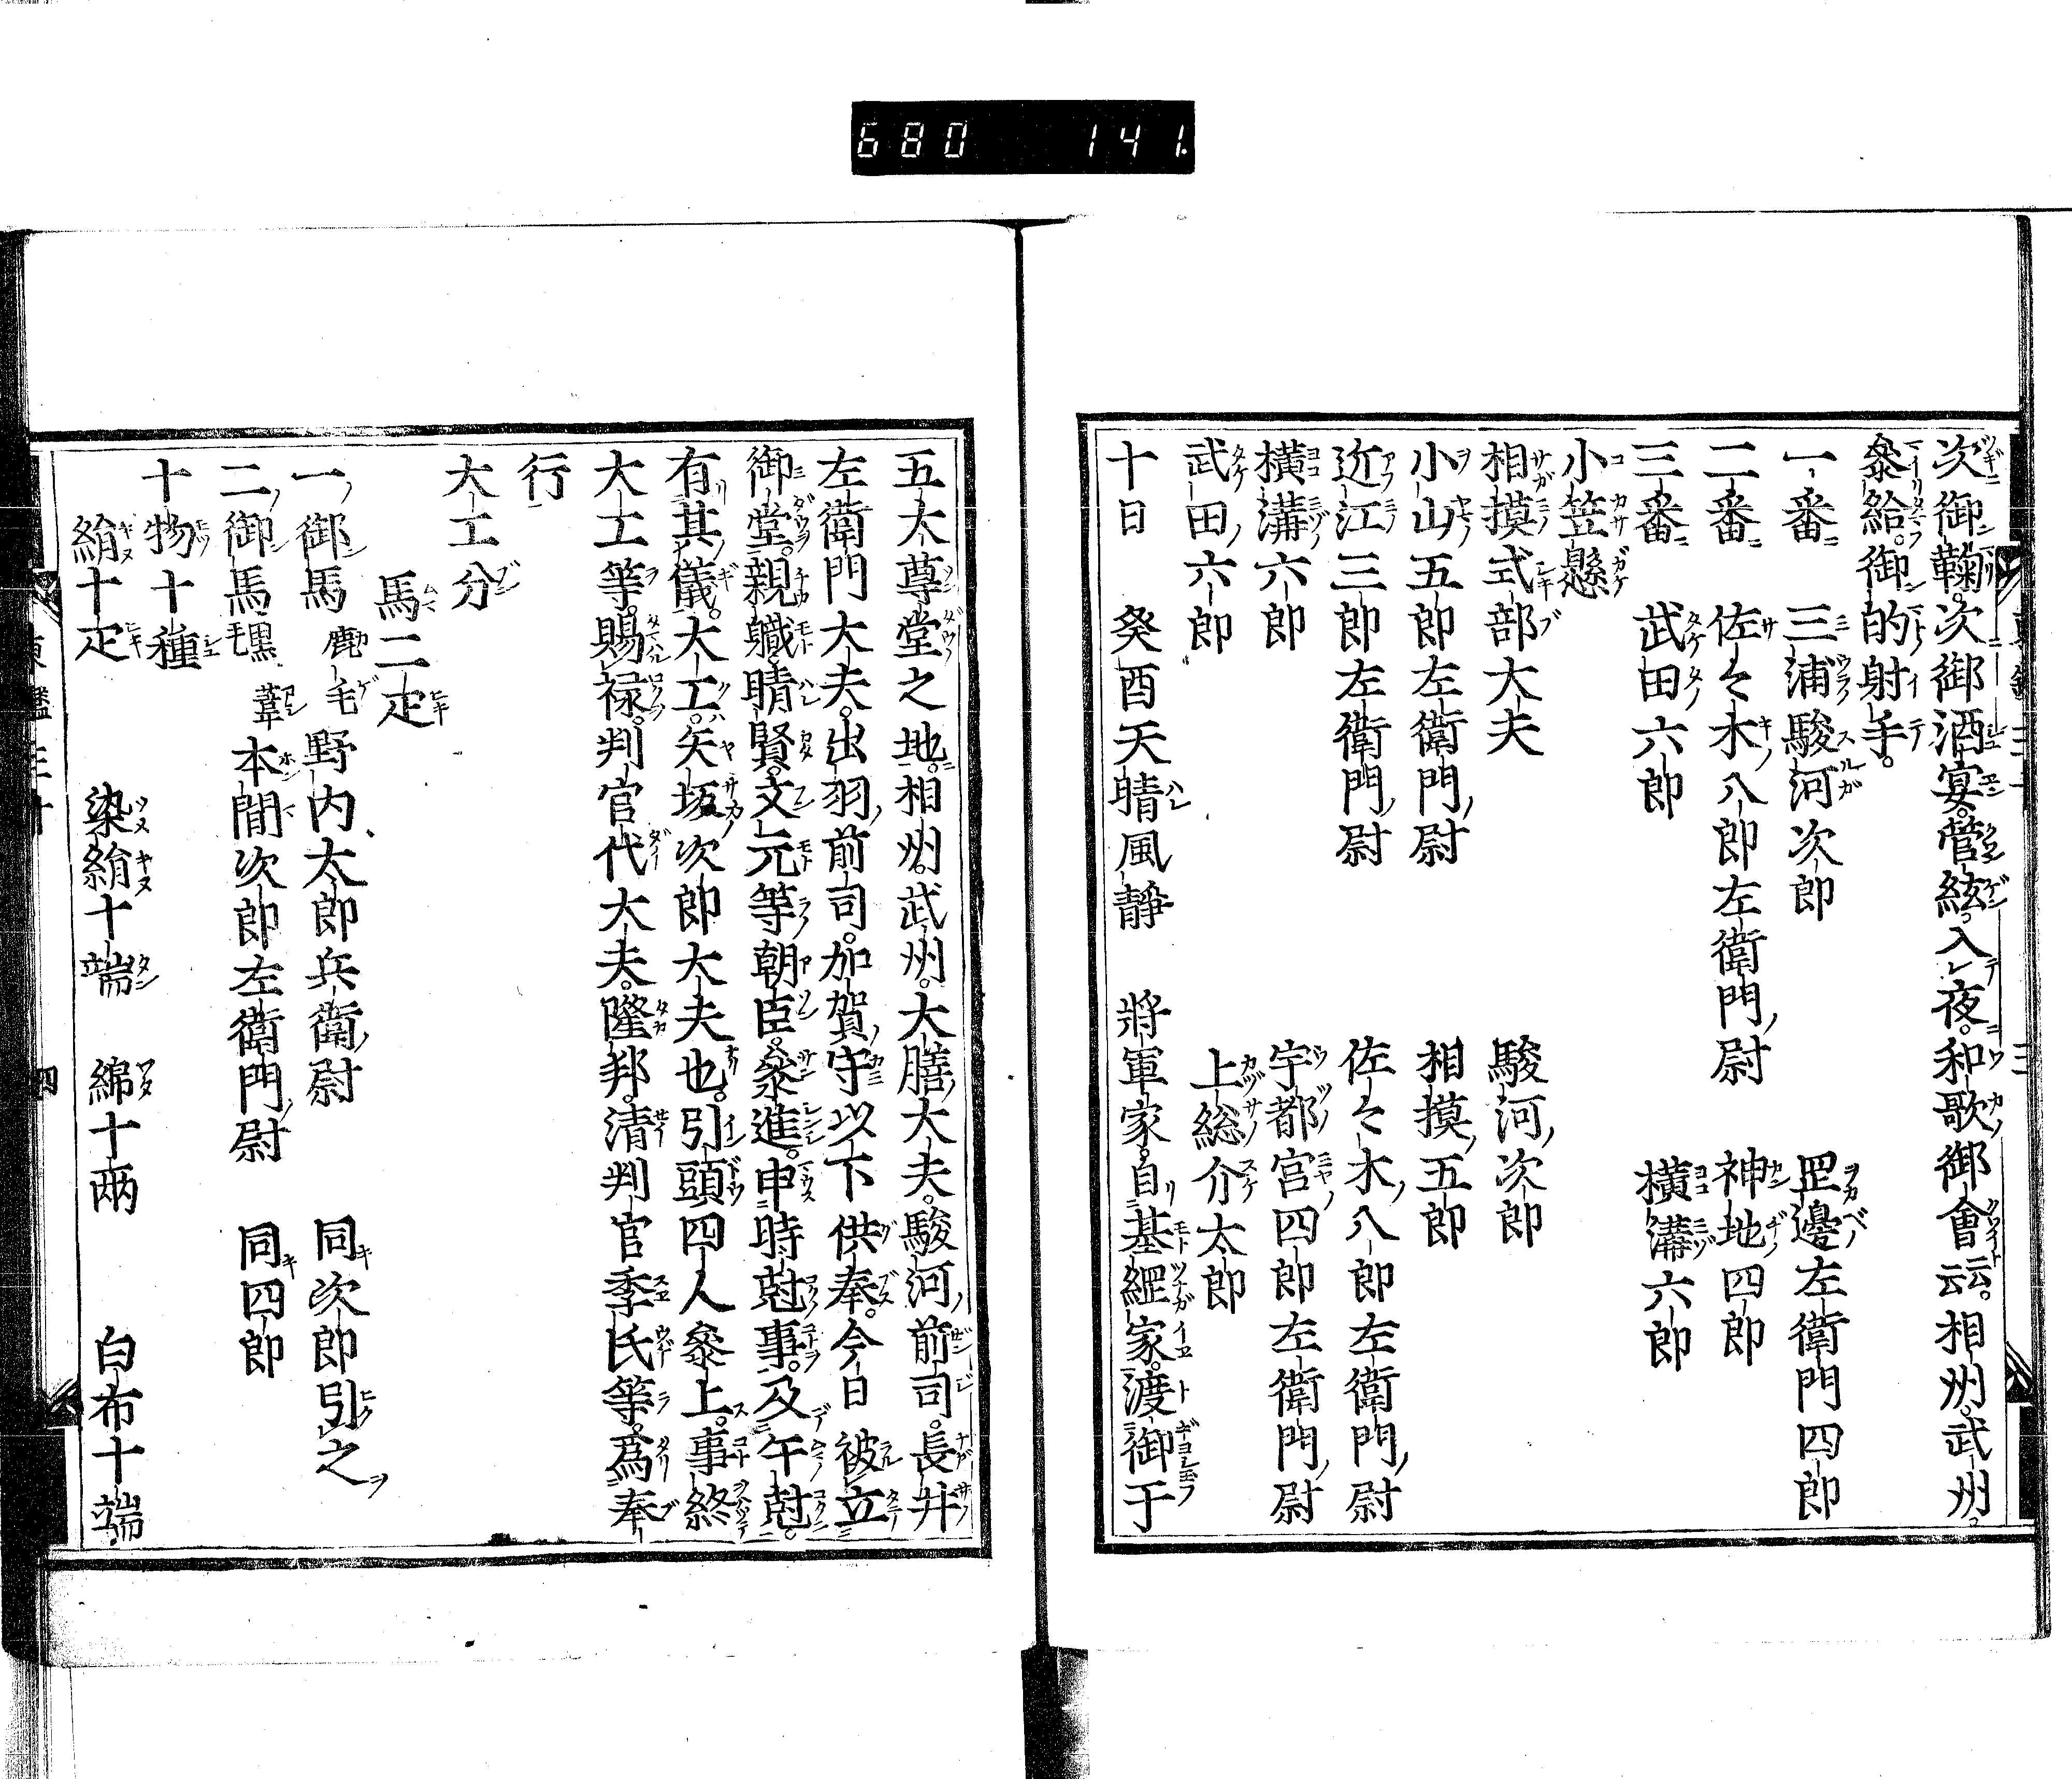 680 141.
次御鞠。次御酒宴。管絃。入夜。和歌御會云云。相州。武州。
叅給。御的射手。
一番 三浦駿河次郎 罡邊左衛門四郎
二番 佐々木八郎左衛門尉 神地四郎
三番 武田六郎 橫溝六郎
小笠懸
相摸式部大夫 駿河次郎
小山五郎左衛門尉 相摸五郎
近江三郎左衛門尉 佐々木八郎左衛門尉
橫溝六郎 宇都宮四郎左衛門尉
武田六郎 上総介太郎
十日 癸酉天晴風靜 將軍家。自基綱家。渡御于
五大尊堂之地。相州。武州。大膳大夫。駿河前司。長井
左衛門大夫。出羽前司。加賀守以下供奉。今日被立
御堂。親職。晴賢。文元等朝臣。叅進。申時尅事。及午尅。
有其儀。大工。矢坂次郎大夫也。引頭四人叅上。事終
大工等。賜禄。判官代大夫。隆邦。清判官季氏等。爲奉
行
大工分
馬二疋
一御馬 鹿毛 野内太郎兵衛尉 同次郎引之
二御馬 黒毛 葦 本間次郎左衛門尉 同四郎
十物十種
絹十疋 染絹十端 綿十兩 白布十端
四